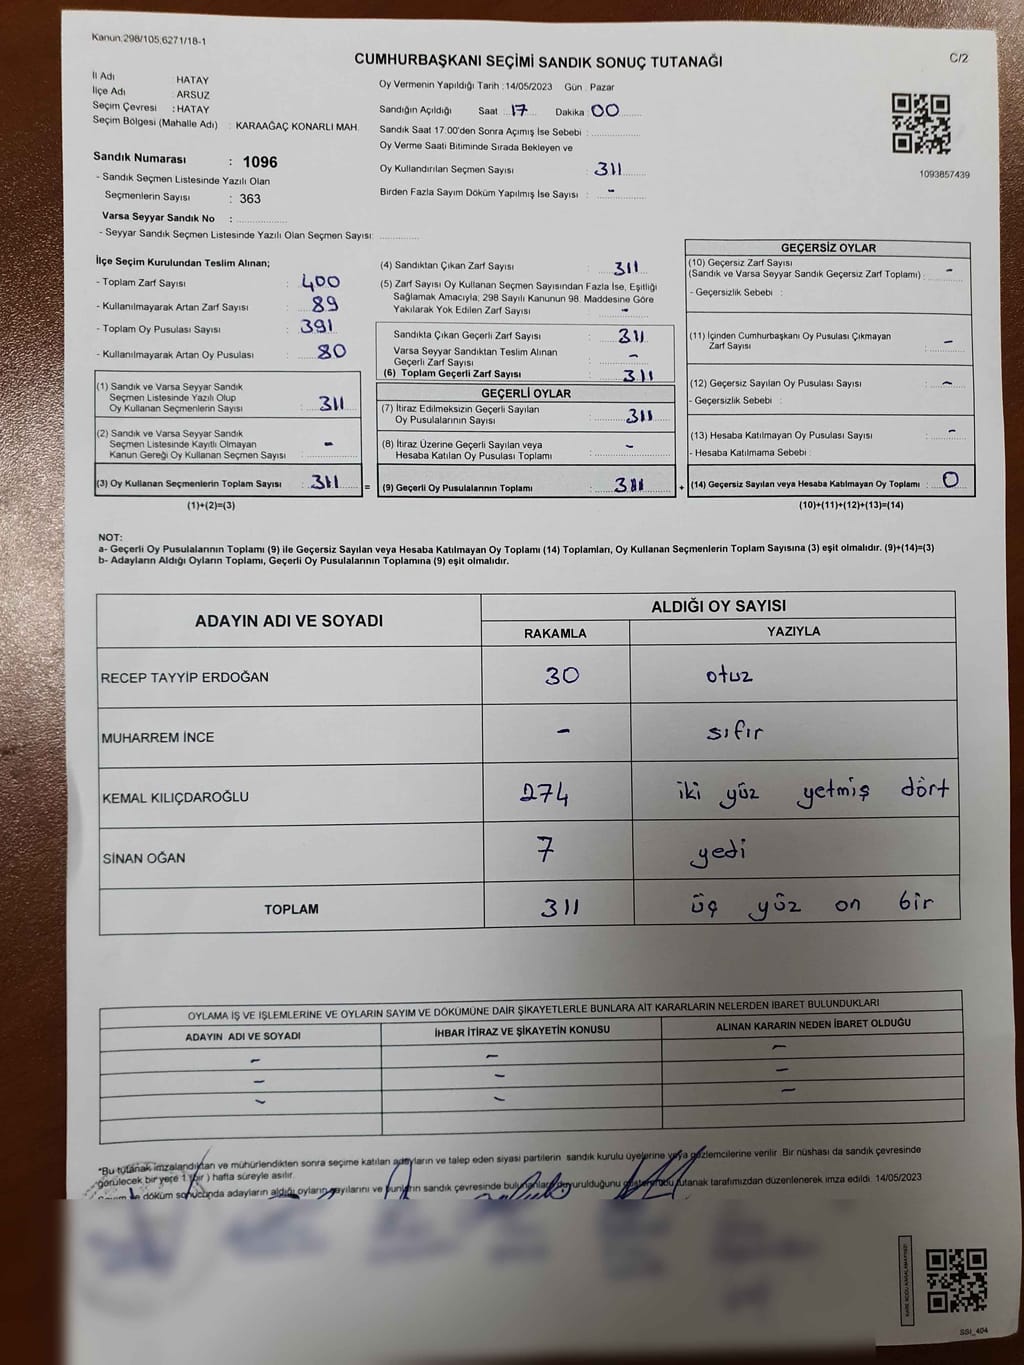 Kanun:298/105,6271/18-1
CUMHURBAŞKANI SEÇİMİ SANDIK SONUÇ TUTANAĞI
C/2
İl Adı HATAY
İlçe Adı ARSUZ
Seçim Çevresi : HATAY
Seçim Bölgesi (Mahalle Adı) : KARAAĞAÇ KONARLI MAH.
Sandık Numarası : 1096
- Sandık Seçmen Listesinde Yazılı Olan
Seçmenlerin Sayısı : 363
Varsa Seyyar Sandık No :
- Seyyar Sandık Seçmen Listesinde Yazılı Olan Seçmen Sayısı:
Oy Vermenin Yapıldığı Tarih :14/05/2023 Gün : Pazar
Sandığın Açıldığı Saat 17 Dakika 00
Sandık Saat 17:00'den Sonra Açımış İse Sebebi :
Oy Verme Saati Bitiminde Sırada Bekleyen ve
Oy Kullandırılan Seçmen Sayısı : 311
Birden Fazla Sayım Döküm Yapılmış İse Sayısı : -
1093857439
İlçe Seçim Kurulundan Teslim Alınan;
- Toplam Zarf Sayısı : 400
- Kullanılmayarak Artan Zarf Sayısı : 89
- Toplam Oy Pusulası Sayısı : 391
- Kullanılmayarak Artan Oy Pusulası : 80
(1) Sandık ve Varsa Seyyar Sandık
Seçmen Listesinde Yazılı Olup
Oy Kullanan Seçmenlerin Sayısı : 311
(2) Sandık ve Varsa Seyyar Sandık
Seçmen Listesinde Kayıtlı Olmayan
Kanun Gereği Oy Kullanan Seçmen Sayısı : -
(3) Oy Kullanan Seçmenlerin Toplam Sayısı : 311
(1)+(2)=(3)
=
(4) Sandıktan Çıkan Zarf Sayısı : 311
(5) Zarf Sayısı Oy Kullanan Seçmen Sayısından Fazla İse, Eşitliği
Sağlamak Amacıyla, 298 Sayılı Kanunun 98. Maddesine Göre
Yakılarak Yok Edilen Zarf Sayısı : -
Sandıkta Çıkan Geçerli Zarf Sayısı : 311
Varsa Seyyar Sandıktan Teslim Alınan
Geçerli Zarf Sayısı : -
(6) Toplam Geçerli Zarf Sayısı : 311
GEÇERLİ OYLAR
(7) İtiraz Edilmeksizin Geçerli Sayılan
Oy Pusulalarının Sayısı : 311
(8) İtiraz Üzerine Geçerli Sayılan veya
Hesaba Katılan Oy Pusulası Toplamı : -
(9) Geçerli Oy Pusulalarının Toplamı : 311
+
GEÇERSİZ OYLAR
(10) Geçersiz Zarf Sayısı
(Sandık ve Varsa Seyyar Sandık Geçersiz Zarf Toplamı) : -
- Geçersizlik Sebebi :
(11) İçinden Cumhurbaşkanı Oy Pusulası Çıkmayan
Zarf Sayısı : -
(12) Geçersiz Sayılan Oy Pusulası Sayısı : -
- Geçersizlik Sebebi :
(13) Hesaba Katılmayan Oy Pusulası Sayısı : -
- Hesaba Katılmama Sebebi :
(14) Geçersiz Sayılan veya Hesaba Katılmayan Oy Toplamı : 0
(10)+(11)+(12)+(13)=(14)
NOT:
a- Geçerli Oy Pusulalarının Toplamı (9) ile Geçersiz Sayılan veya Hesaba Katılmayan Oy Toplamı (14) Toplamları, Oy Kullanan Seçmenlerin Toplam Sayısına (3) eşit olmalıdır. (9)+(14)=(3)
b- Adayların Aldığı Oyların Toplamı, Geçerli Oy Pusulalarının Toplamına (9) eşit olmalıdır.
ADAYIN ADI VE SOYADI
ALDIĞI OY SAYISI
RAKAMLA YAZIYLA
RECEP TAYYİP ERDOĞAN 30 otuz
MUHARREM İNCE - sıfır
KEMAL KILIÇDAROĞLU 274 iki yüz yetmiş dört
SİNAN OĞAN 7 yedi
TOPLAM 311 üç yüz on bir
OYLAMA İŞ VE İŞLEMLERİNE VE OYLARIN SAYIM VE DÖKÜMÜNE DAİR ŞİKAYETLERLE BUNLARA AİT KARARLARIN NELERDEN İBARET BULUNDUKLARI
ADAYIN ADI VE SOYADI İHBAR İTİRAZ VE ŞİKAYETİN KONUSU ALINAN KARARIN NEDEN İBARET OLDUĞU
- - -
- - -
- - -
*Bu tutanak imzalandıktan ve mühürlendikten sonra seçime katılan adayların ve talep eden siyasi partilerin sandık kurulu üyelerine veya gözlemcilerine verilir. Bir nüshası da sandık çevresinde
görülecek bir yere 1 (bir ) hafta süreyle asılır.
döküm sonucunda adayların aldığı oyların sayılarını ve bunların sandık çevresinde duyurulduğunu tutanak tarafımızdan düzenlenerek imza edildi. 14/05/2023
SSI_404